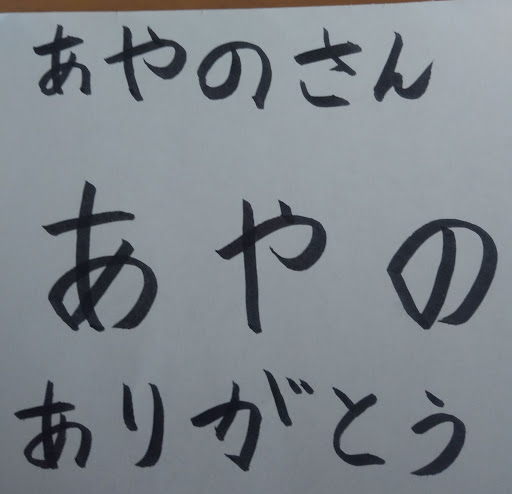 あやのさん
あやの
ありがとう